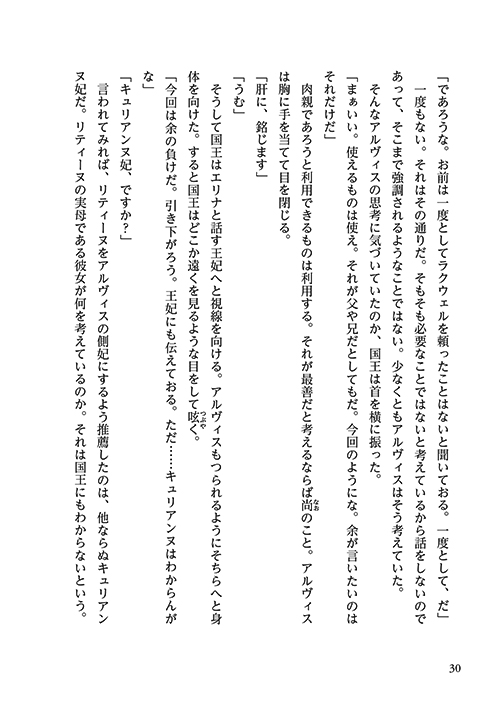 「であろうな。お前は一度としてラクウェルを頼ったことはないと聞いておる。一度として、だ」
　一度もない。それはその通りだ。そもそも必要なことではないと考えているから話をしないので
あって、そこまで強調されるようなことではない。少なくともアルヴィスはそう考えていた。
　そんなアルヴィスの思考に気づいていたのか、国王は首を横に振った。
「まぁいい。使えるものは使え。それが父や兄だとしてもだ。今回のようにな。余が言いたいのは
それだけだ」
　肉親であろうと利用できるものは利用する。それが最善だと考えるならば尚なおのこと。アルヴィス
は胸に手を当てて目を閉じる。
「肝に、銘じます」
「うむ」
　そうして国王はエリナと話す王妃へと視線を向ける。アルヴィスもつられるようにそちらへと身
体を向けた。すると国王はどこか遠くを見るような目をして呟つぶやく。
「今回は余の負けだ。引き下がろう。王妃にも伝えておる。ただ……キュリアンヌはわからんが
な」
「キュリアンヌ妃、ですか？」
　言われてみれば、リティーヌをアルヴィスの側妃にするよう推薦したのは、他ならぬキュリアン
ヌ妃だ。リティーヌの実母である彼女が何を考えているのか。それは国王にもわからないという。
30